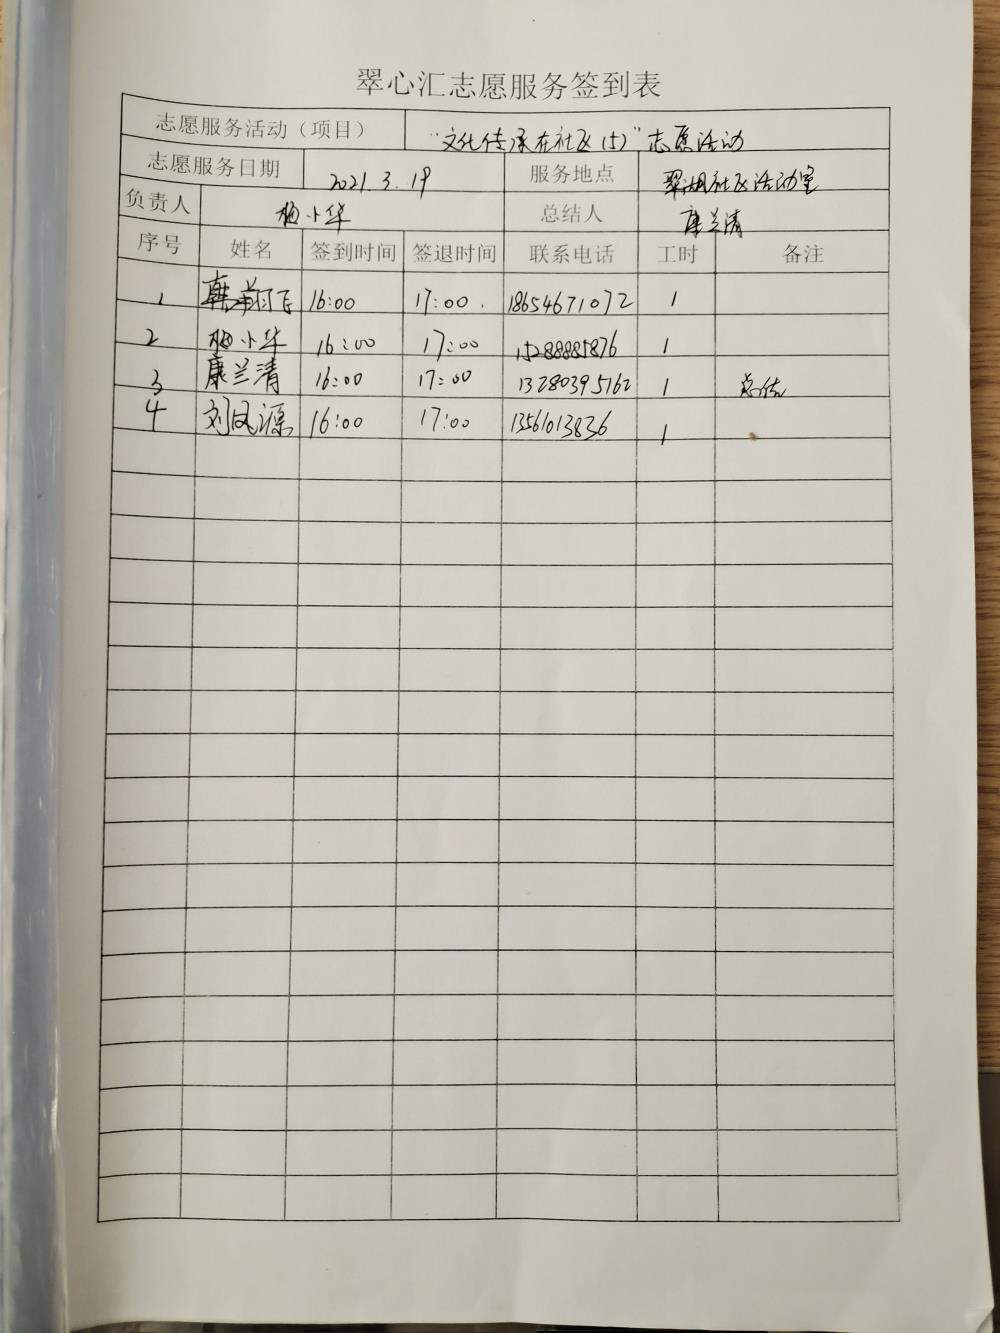 翠心汇志愿服务签到表
志愿服务活动（项目） “文化传承在社区（5）”志愿活动
志愿服务日期 2021.3.19 服务地点 翠湖社区活动室
负责人 杨小华 总结人 康兰清
序号 姓名 签到时间 签退时间 联系电话 工时 备注
1 韩翔飞 16:00 17:00. 18654671072 1
2 杨小华 16:00 17:00 15288885876 1
3 康兰清 16:00 17:00 13280395162 1 总结
4 刘凤源 16:00 17:00 13561013836 1